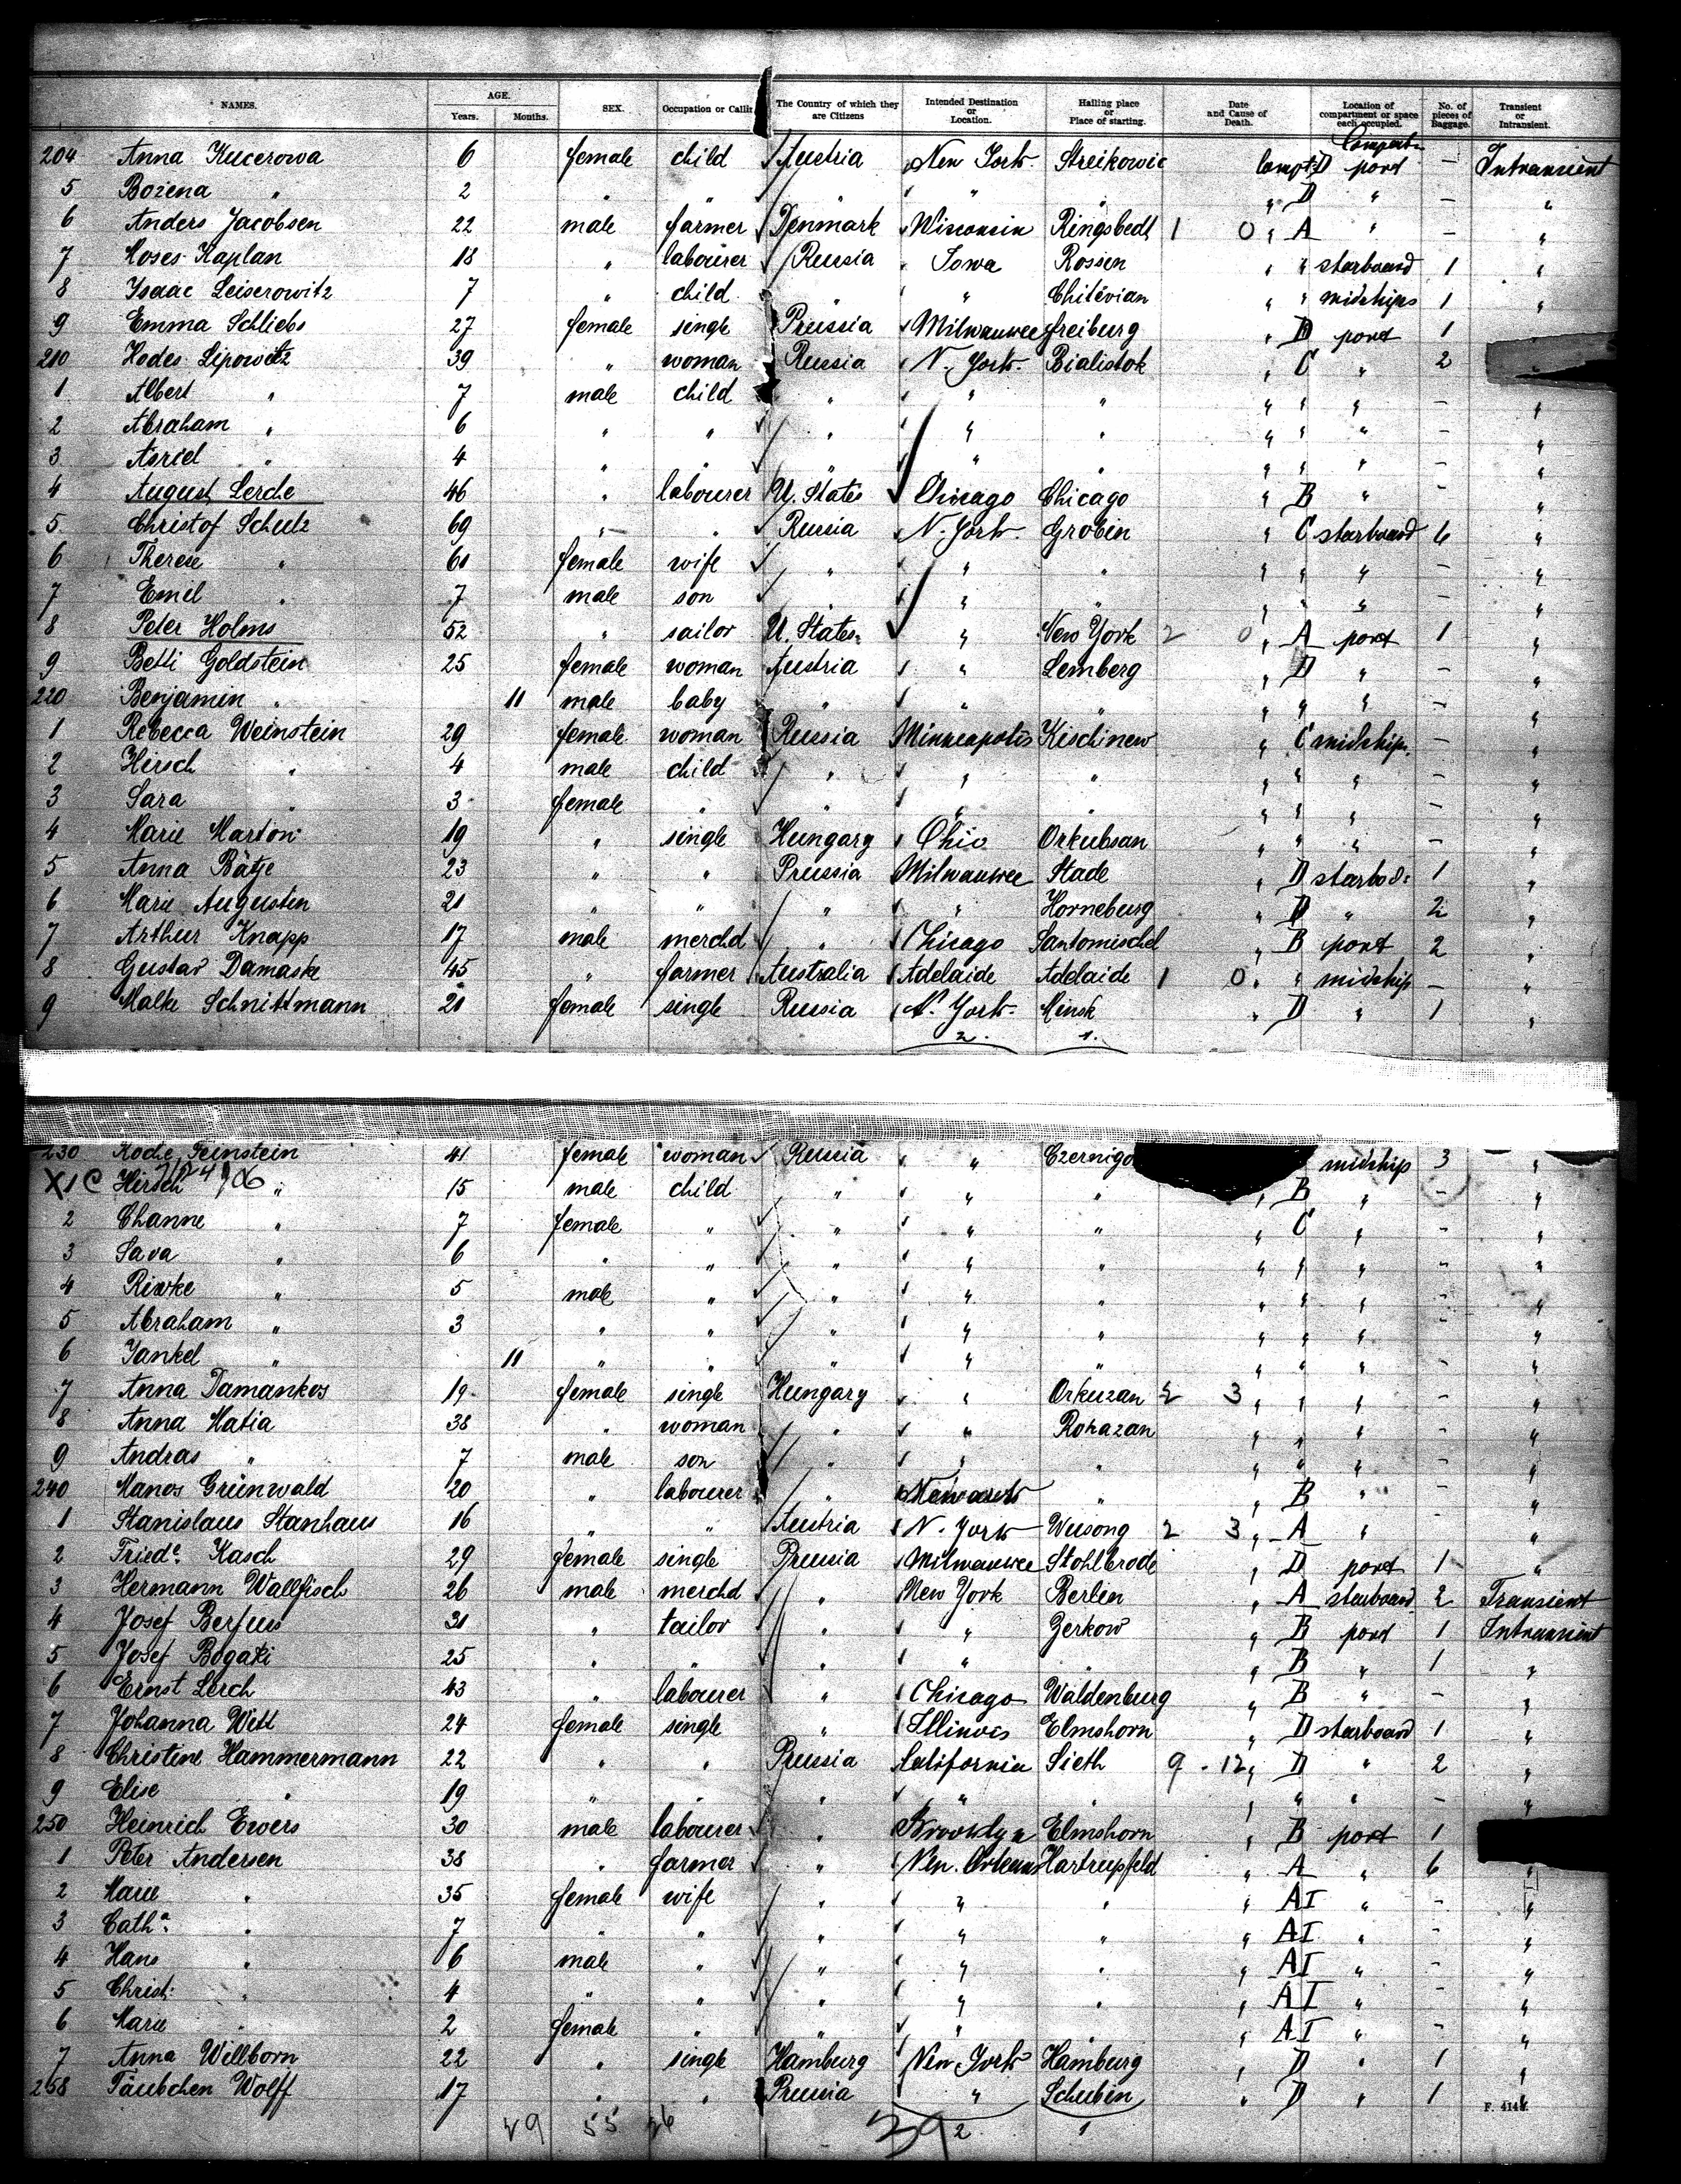 NAMES. AGE. Years. Months. SEX. Occupation or Calling The Country of which they are Citizens Intended Destination or Location. Hailing place or Place of starting. Date and Cause of Death. Location of compartment or space each occupied. No. of pieces of Baggage. Transient or Intransient.
204 Anna Kucerowa 6 female child Austria New York Streikowic Compt. D port - Intransient
5 Bozena " 2 " " " " " " D " - "
6 Anders Jacobsen 22 male farmer Denmark Wisconsin Ringsbedt 1 0 " A " - "
7 Moses Kaplan 18 " labourer Russia Iowa Rossen " " starboard 1 "
8 Isaac Leiserowitz 7 " child " " Chitévian " " midships 1 "
9 Emma Schliebs 27 female single Prussia Milwaukee freiburg " D port 1
210 Hodes Lipowitz 39 " woman Russia N. York Bialistok " C " 2 "
1 Albert " 7 male child " " " " " " - "
2 Abraham " 6 " " " " " " " " - "
3 Asriel " 4 " " " " " " " " - "
4 August Lerche 46 " labourer U. States Chicago Chicago " B " - "
5 Christof Schulz 69 " " Russia N. York Grobin " C starboard 6 "
6 Therese " 61 female wife " " " " " " - "
7 Emil " 7 male son " " " " " " - "
8 Peter Holms 52 " sailor U. States " New York 2 0 " A port 1 "
9 Betti Goldstein 25 female woman Austria " Lemberg " D " - "
220 Benjamin " 11 male baby " " " " " " - "
1 Rebecca Weinstein 29 female woman Russia Minneapolis Kischinew " C midship. - "
2 Hirsch " 4 male child " " " " " " - "
3 Sara " 3 female " " " " " " " - "
4 Marie Marton 19 " single Hungary Ohio Orkubsan " " " - "
5 Anna Bätje 23 " " Prussia Milwaukee Stade " D starbod: 1 "
6 Marie Augustin 21 " " " " Horneburg " D " 2 "
7 Arthur Knapp 17 male merchd " Chicago Santomischel " B port 2 "
8 Gustav Damaske 45 " farmer Australia Adelaide Adelaide 1 0 " " midship - "
9 Malke Schnittmann 21 female single Russia N. York Minsk " D " 1 "
2. 1.
230 Kode Feinstein 41 female woman Russia " Czernigo midship 3 "
X1C Hirsch " 15 male child " " " " B " - "
2 Channe " 7 female " " " " " C " - "
3 Sava " 6 " " " " " " " " - "
4 Riwke " 5 male " " " " " " " - "
5 Abraham " 3 " " " " " " " " - "
6 Jankel " 11 " " " " " " " " - "
7 Anna Damankos 19 female single Hungary " Orkuzan 2 3 " " " - "
8 Anna Hatia 38 " woman " " Rokazan " " " - "
9 Andras " 7 male son " " " " " " - "
240 Manos Grünwald 20 " labourer " " " B " - "
1 Stanislaus Stanhaus 16 " " Austria N. York Wusong 2 3 " A " - "
2 Friede. Kasch 29 female single Prussia Milwaukee Stohlbrode " D port 1 "
3 Hermann Wallfisch 26 male merchd " New York Berlin " A starboard 2 Transient
4 Josef Berfus 31 " tailor " " Zerkow " B port 1 Intransient
5 Josef Bogaki 25 " " " " " " B " 1 "
6 Ernst Lerch 43 " labourer " Chicago Waldenburg " B " - "
7 Johanna Witt 24 female single " Illinois Elmshorn " D starboard 1 "
8 Christine Hammermann 22 " " Prussia California Sieth 9 - 12 " D " 2 "
9 Elise " 19 " " " " " " " " - "
250 Heinrich Ewers 30 male labourer " Brooklyn Elmshorn " B port 1
1 Peter Andersen 38 " farmer " New. Orleans Hartrupfeld " A " 6 "
2 Marie " 35 female wife " " " " AI " - "
3 Catha. " 7 " " " " " " AI " - "
4 Hans " 6 male " " " " " AI " - "
5 Christ: " 4 " " " " " " AI " - "
6 Marie " 2 female " " " " " AI " - "
7 Anna Willborn 22 " single Hamburg New York Hamburg " D " 1 "
258 Täubchen Wolff 17 " " Prussia " Schubin " D " 1 "
F. 414
29 55 26 39 2 1